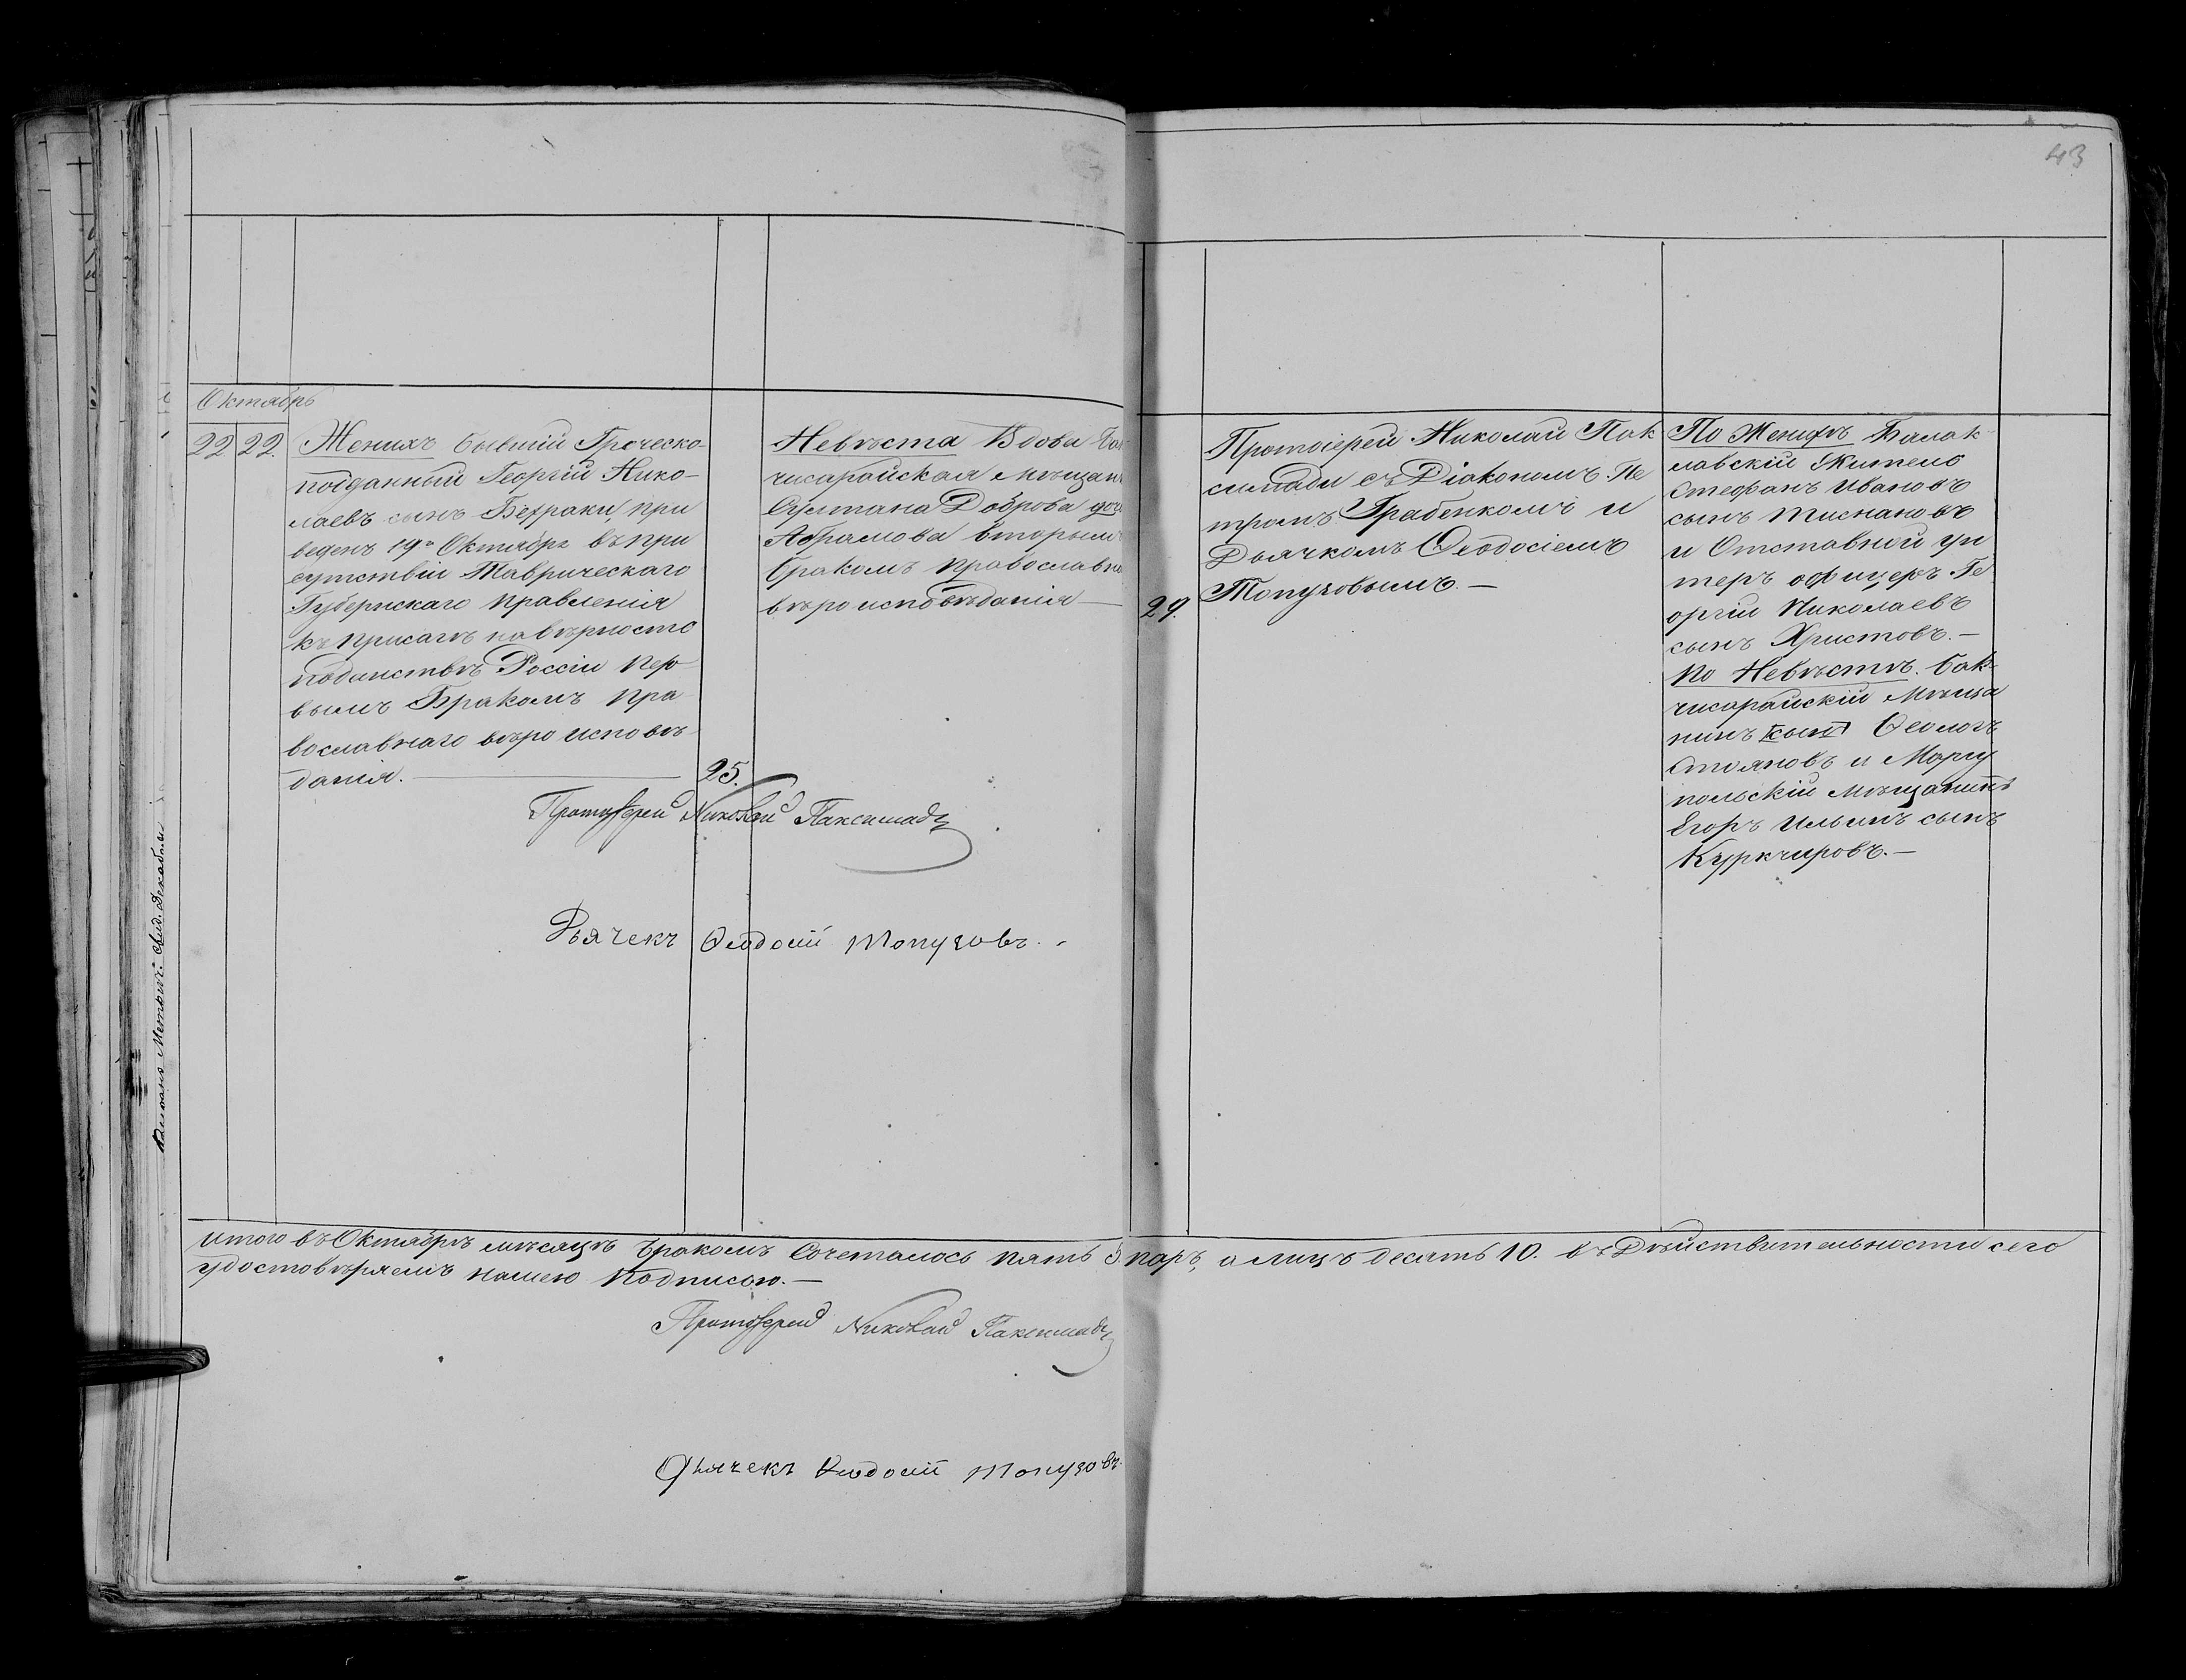 43
Октябрь
22 22.
Женихъ бывшій Греческо-
подданный Георгій Нико-
лаевъ сынъ Бехраки, при
веденъ 19го Октября въ при
сутствіи Таврическаго
Губернскаго Правленія
къ присягѣ на вѣрность
подданствѣ Россіи пер
вымъ Бракомъ пра
вославнаго вѣро исповѣ
данія.
25.
Невѣста Вдова Бах
чисарайская мѣщан
Султана Доброва доч
Абрамова вторымъ
бракомъ православна
вѣроисповѣданія
29.
Протоіерей Николай Пак
симади съ Діакономъ Пе
тромъ Грабенкомъ и
Дьячкомъ Ѳеодосіемъ
Топузовымъ.—
По Женихѣ Балак
лавскій Житель
Стефанъ Ивановъ
сынъ
и Отставной ун
теръ офицеръ Ге
оргій Николаевъ
сынъ Христовъ.—
По Невѣстѣ. Бах-
чисарайскій Мѣща
нинъ Ѳеологъ
Стояновъ и Маріу
польскій мѣщанинъ
Егоръ Ильинъ сынъ
Куркчировъ.—
Протоіерей Николай Паксимади
Дьячекъ Ѳеодосій Топузовъ.
Итого въ Октябрѣ мѣсяцѣ бракомъ Сочеталось пять 5. паръ, а лицъ десять 10. въ Дѣйствительности сего
удостовѣряемъ нашею подписью.—
Протоіерей Николай Паксимади
Дьячекъ Ѳеодосій Топузовъ.